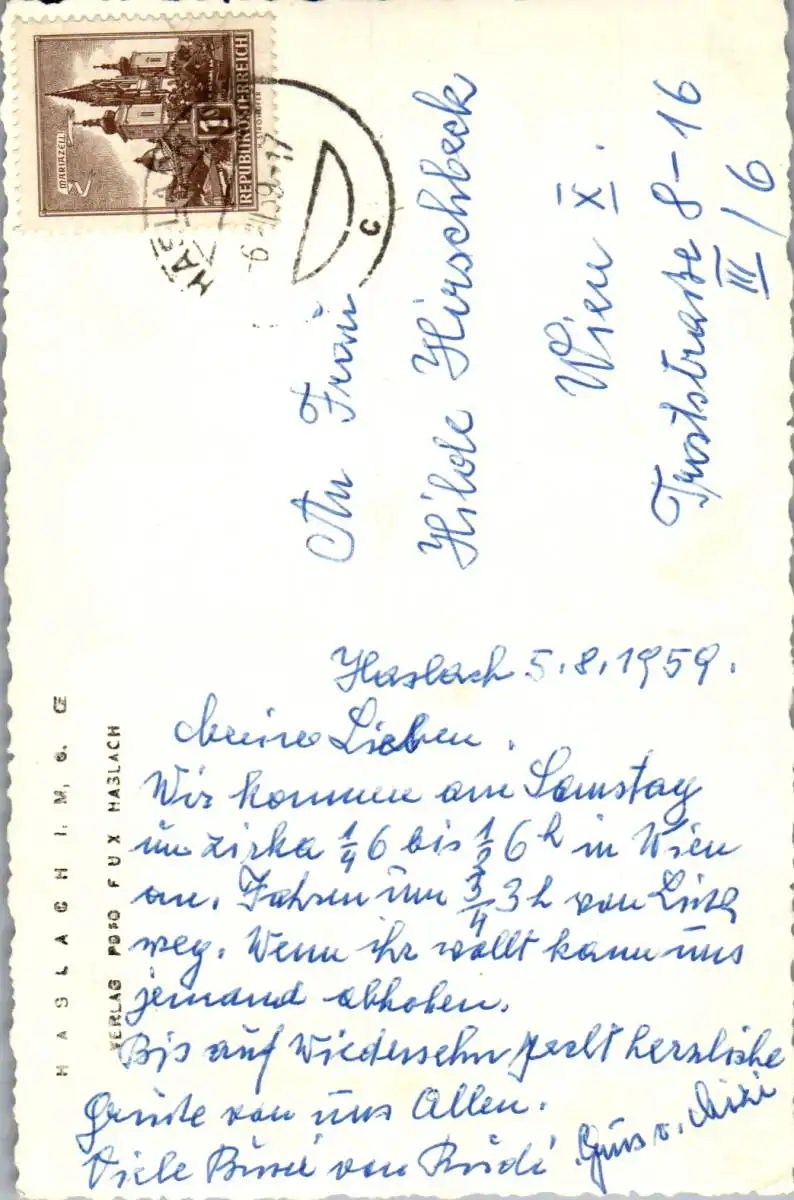 MARIAZELL
1S
REPUBLIK ÖSTERREICH
HASLACH
-6.VIII.59-17
c
An Frau
Hilde Hirschbeck
Wien X.
Troststraße 8-16
III/6
HASLACH I. M., O. Ö
VERLAG FOTO FUX HASLACH
Haslach 5.8.1959.
Meine Lieben.
Wir kommen am Samstag
um zirka 1/4 6 bis 1/2 6 h in Wien
an. Fahren um 3/4 3h von Linz
weg. Wenn ihr wollt kann uns
jemand abholen.
Bis auf Wiedersehn herzliche
Grüße von uns Allen.
Viele Bussi von Rudi Gruss v. Mizzi